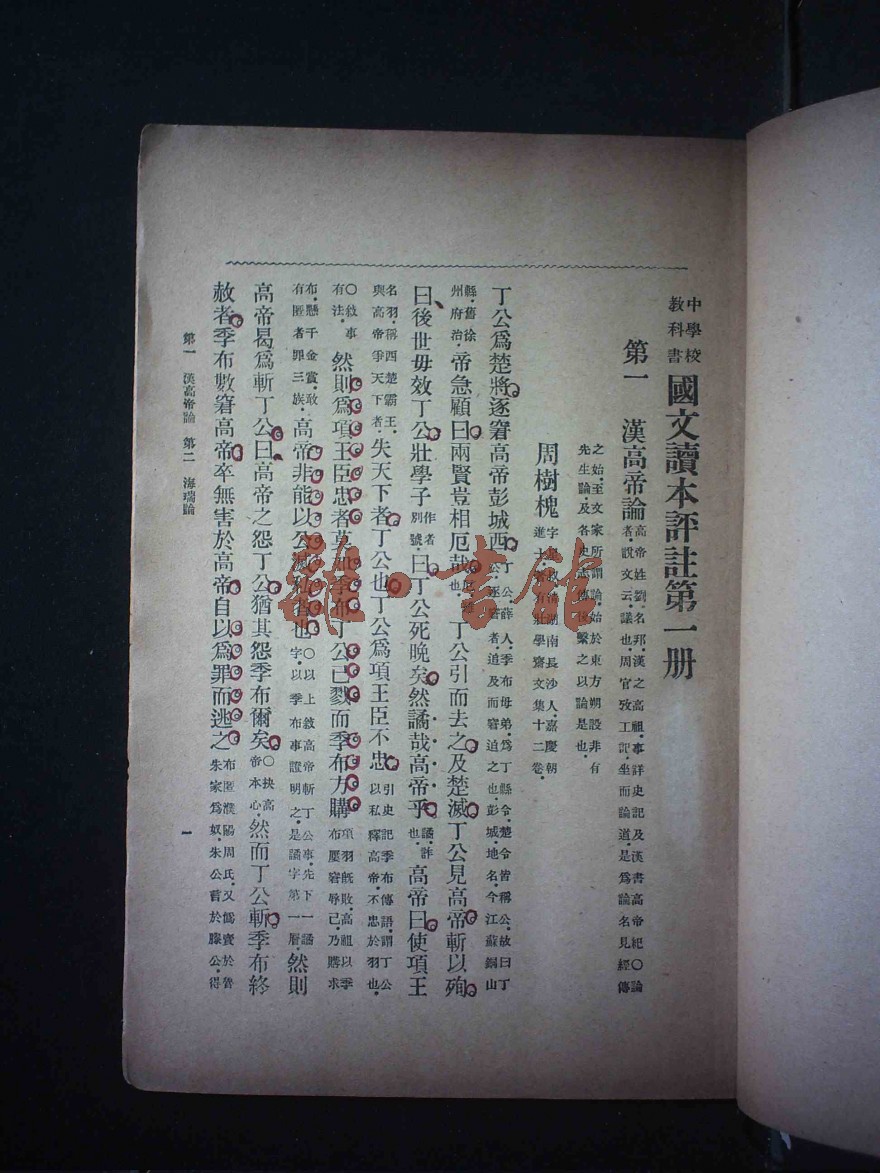 中學校
教科書
國文讀本評註第一册
第一 漢高帝論
高帝姓劉名邦漢之高祖事詳史記及漢書高帝紀〇論
者說文云議也周官攷工記坐而論道是爲論名見經傳
之始至文家所謂論始於東方朔設非有
先生論及各史志傳後繫之以論是也
周樹槐
字星叔清湖南長沙人嘉慶朝
進士著有壯學齋文集十二卷
丁公爲楚將逐窘高帝彭城西
丁公薛人季布母弟爲丁縣令楚令皆稱公故曰丁
公逐窘者追及而窘迫之也彭城地名今江蘇銅山
縣舊徐
州府治
帝急顧曰兩賢豈相厄哉
丁公引而去之及楚滅丁公見高帝斬以殉
曰後世毋效丁公壯學子
作者
別號
曰丁公死晚矣然譎哉高帝乎
譎詐
也
高帝曰使項王
名羽稱西楚霸王
與高帝爭天下者
失天下者丁公也丁公爲項王臣不忠
引史記季布傳語謂丁公
以私釋高帝不忠於羽也
〇敘事
有法
然則爲項王臣忠者莫如季布丁公已戮而季布方購
項羽旣敗高祖以季
布屢窘辱己乃購求
布懸千金賞敢
有匿者罪三族
高帝非能以公滅私者也
〇以上敘高帝斬丁公事先下一譎
字以季布事證明之是譎字第一層
然則
高帝曷爲斬丁公曰高帝之怨丁公猶其怨季布爾矣
〇抉高
帝本心
然而丁公斬季布終
赦者季布數窘高帝卒無害於高帝自以爲罪而逃之
布匿濮陽周氏又僞賣於魯
朱家爲奴朱公嘗於滕公得
第一 漢高帝論 第二 海瑞論
一
雜·書館